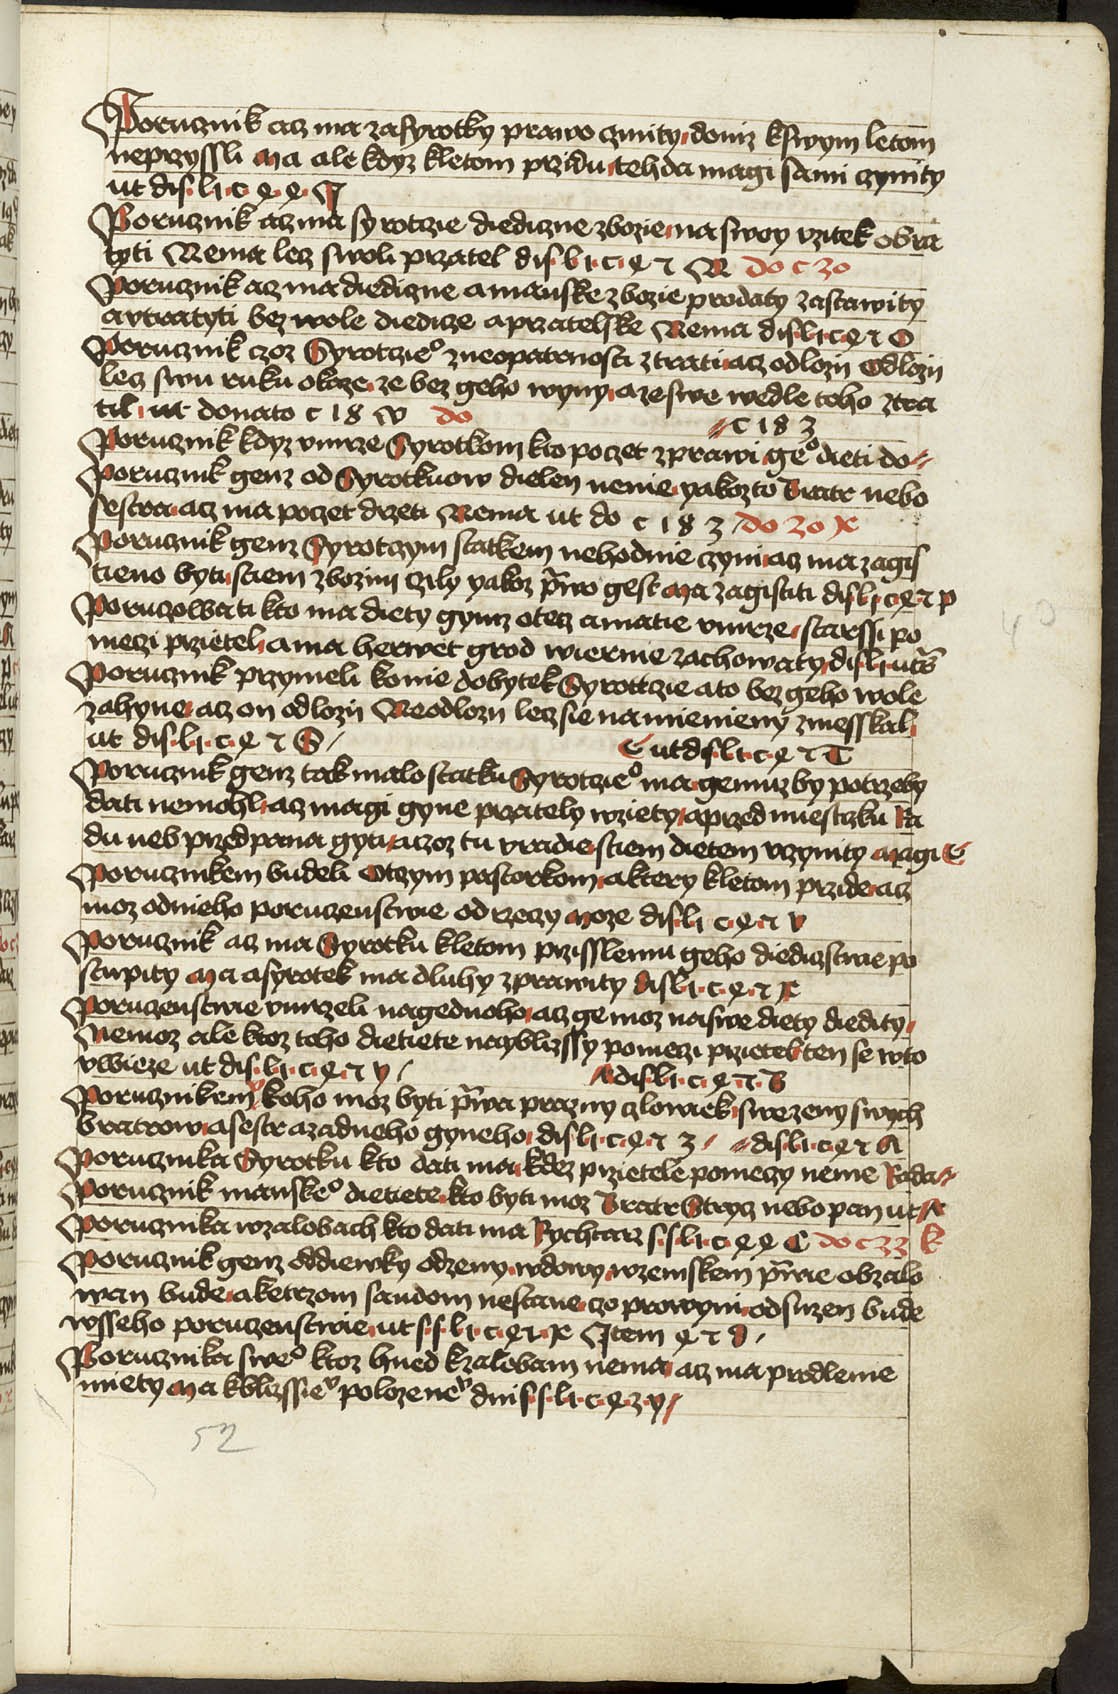 Porucznik acz ma zasyrotky prawo czinity doniz kswym letom
neprzyssli Ma ale kdyz kletom przidu tehda magi sami czynity
ut dis. li. c. q. q.
Porucznik acz ma syrotczie diediczne zbozie na swoy vzitek obra
tyti Nema lecz swoli przatel dis. li. c. q. z N do c 20
Porucznik acz ma diediczne a manske zbozie prodaty zastawity
a vtratyti bez wole diedicze a przatelske Nema dis li c. q. z O
Porucznik czoz Syrotczieº zneopatrnosti ztrati acz odlozij Odlozij
lecz swu ruku okaze ze bez geho wyny a ze swe wedle toho ztra
til ut donato c 18 V do
c 183
Porucznik kdyz vmrze Syrotkom kto poczet zprawi geº dieti do
Porucznik genz od Syrotkuow dielen nenie yakozto Bratr nebo
sestra acz ma poczet drzeti Nema ut do c 183 do 20 x
Porucznik genz Syrotczym statkem nehodnie czyni acz ma zagis
tieno byti stiem zbozim czily yakoz p̃wo gest Ma zagistiti dis li. c. q. z p
Poruczowati kto ma diety gymz otecz a matie vmrze starssi po
meczi przietel a ma herwet grod wiernie zachowaty dis. li. ut s̃
Porucznik przymeli konie dobytek Syrottczie a to bez geho wole
zahyne acz on odlozij Neodlozij lecz sie namienieny zmesskal
ut dis. li. c. q. z S
E ut dis. li. c. q. z T
Porucznik genz tak malo statku Syrotczieº ma gemuz by potrzeby
dati nemohl acz magi gyne przately wziety a przed miestsku Ra
du neb przed pana gyti a czoz tu vradie stiem dietem vczynity Magi E
Porucznikem budeli Otczym pastorkom a ktery kletom przide acz
moz odnieho poruczenstwie od rzeczy Moze dis. li c. q. z V
Porucznik acz ma Syrotku kletom przisslemu geho diedicztwie po
stupity Ma a syrotek ma dluhy zprawity dis li. c. q. z X
Poruczenstwie vmrzeli na gednoho acz ge moz na swe diety diedity
Nemoz ale ktoz toho dietiete nayblizssy pomeczi przietel ten se wto
vwieze ut dis. li. c. q. z y
A dis. li. c. q. z. B
Porucznikem koho moz byti p̃wa prazny czlowiek swe zeny swych
bratrow a sestr a zadneho gyneho dis li. c. q. z 3 dis li. c. q z A
Porucznika Syrotku kto dati ma kdez przietele pomeczy nenie Rada
Porucznik manskeº dietiete kto byti moz Bratr Strycz nebo pan ut A
Porucznika wzalobach kto dati ma Rychtarz s. s. li. c. q q C do c 22 k
Porucznik genz od diewky od zeny wdowy wzemskem p̃wie obzalo
wan bude a ketrzom saudom nestane czo prowyni odsuzen bude
wsseho poruczenstwie ut s. s. li. c. q. z. X Item q z D
Porucznika sweº ktoz hned kzalobam nema acz ma prodlenie
miety Ma kblizssieº polozeneº dni s. s. li. c. q. z. y
52